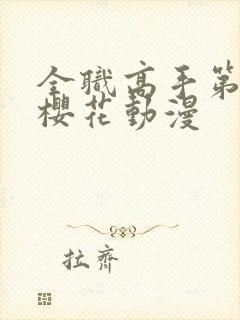 全職高手第
櫻花動漫
拉齊